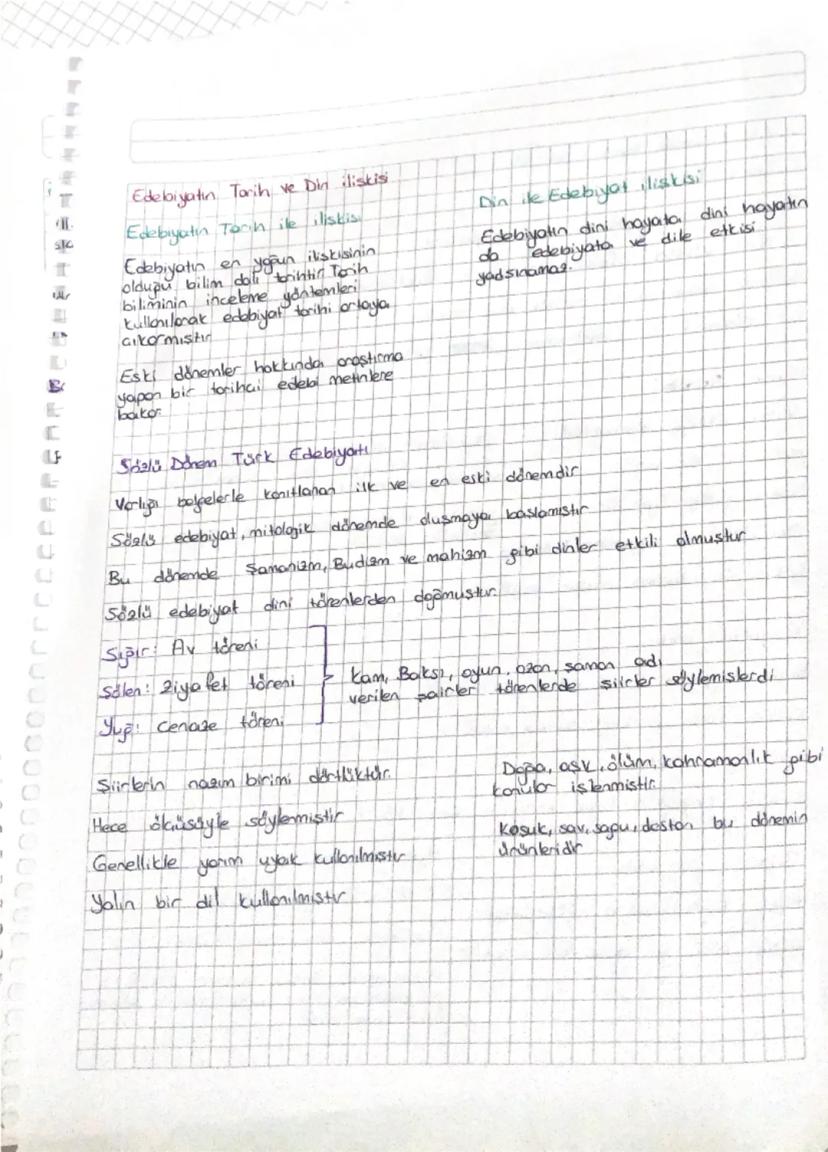 Edebiyatın Tarih ve Din ilişkisi
Edebiyatın Tarih ile ilişkisi
Edebiyatın en yoğun ilişkisinin
olduğu bilim dalı tarihtir Tarih
biliminin inceleme yöntemleri
kullanılarak edebiyat tarihi ortaya
çıkarmıştır
Eski dönemler hakkında araştırma
yapan bir tarihçi edebi metinlere
bakar.
Din ile Edebiyat ilişkisi
Edebiyatın dini hayata dini hayatın
da edebiyata ve dile etkisi
yadsınamaz.
Sözlü Dönem Türk Edebiyatı
Varlığı belgelerle kanıtlanan ilk ve en eski dönemdir
Sözlü edebiyat, mitolojik dönemde oluşmaya başlamıştır
Bu dönemde Şamanizm, Budizm ve mahizm gibi dinler etkili olmuştur
Sözlü edebiyat dini törenlerden doğmuştur.
Sığır: Av töreni
Şölen: Ziyafet töreni
Yuğ: Cenaze töreni
Kam, Baksı, oyun, ozan, şaman adı
verilen şairler törenlerde şiirler söylemişlerdi
Şiirlerin nazım birimi dörtlüktür.
Hece ölçüsüyle söylemiştir
Genellikle yarım uyak kullanılmıştır
Yalın bir dil kullanılmıştır
Doğa, aşk, ölüm, kahramanlık gibi
konular işlenmiştir.
Koşuk, sav, sagu, destan bu dönemin
ürünleridir